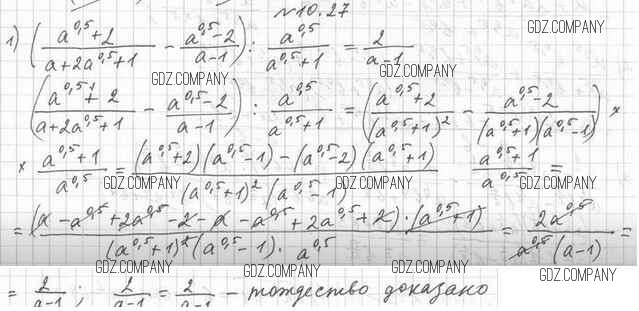 №10.27
GDZ.COMPANY
1) ((a^0,5+2)/(a+2a^0,5+1) - (a^0,5-2)/(a-1)) : a^0,5/(a^0,5+1) = 2/(a-1)
GDZ.COMPANY GDZ.COMPANY
((a^0,5+2)/(a+2a^0,5+1) - (a^0,5-2)/(a-1)) : a^0,5/(a^0,5+1) = ((a^0,5+2)/(a^0,5+1)^2 - (a^0,5-2)/((a^0,5+1)(a^0,5-1))) ×
GDZ.COMPANY GDZ.COMPANY
× (a^0,5+1)/a^0,5 = ((a^0,5+2)(a^0,5-1)-(a^0,5-2)(a^0,5+1))/((a^0,5+1)^2 (a^0,5-1)) (a^0,5+1)/a^0,5 =
GDZ.COMPANY GDZ.COMPANY GDZ.COMPANY
= ((a-a^0,5+2a^0,5-2-a-a^0,5+2a^0,5+2)·(a^0,5+1))/((a^0,5+1)^2(a^0,5-1)·a^0,5) = 2a^0,5/(a^0,5(a-1)) =
GDZ.COMPANY GDZ.COMPANY GDZ.COMPANY
GDZ.COMPANY GDZ.COMPANY GDZ.COMPANY
= 2/(a-1); 2/(a-1) = 2/(a-1) - тождество доказано